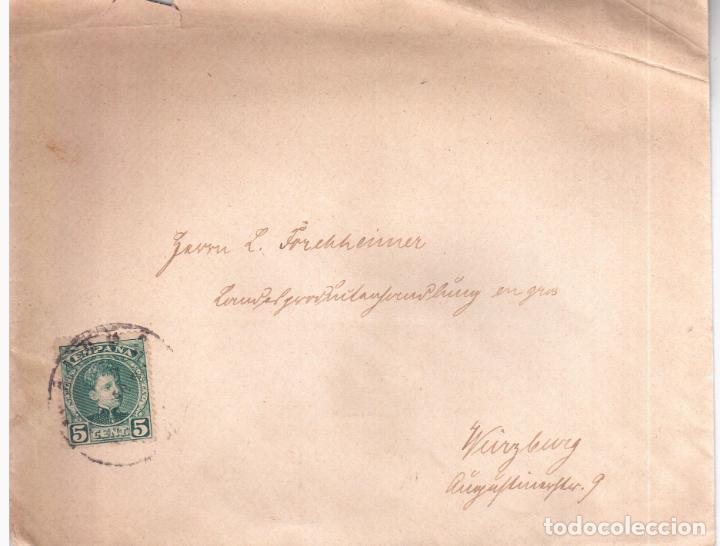 Herrn L. Forchheimer
Landesproduktenhandlung en gros
ESPAÑA
5 CENT. 5
Würzburg
Augustinerstr. 9
todocoleccion
todocoleccion.net